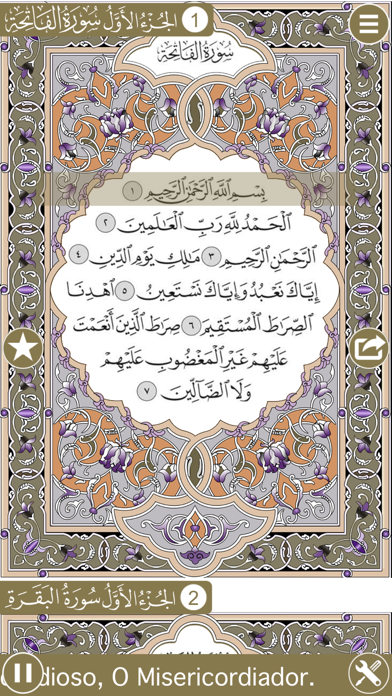 الجُزْءُ الأَوَّلُ سُورَةُ الفَاتِحَةِ 1
سُورَةُ الْفَاتِحَةِ
بِسْمِ اللَّهِ الرَّحْمَٰنِ الرَّحِيمِ ١
الْحَمْدُ لِلَّهِ رَبِّ الْعَالَمِينَ ٢
الرَّحْمَٰنِ الرَّحِيمِ ٣ مَالِكِ يَوْمِ الدِّينِ ٤
إِيَّاكَ نَعْبُدُ وَإِيَّاكَ نَسْتَعِينُ ٥ اهْدِنَا
الصِّرَاطَ الْمُسْتَقِيمَ ٦ صِرَاطَ الَّذِينَ أَنْعَمْتَ
عَلَيْهِمْ غَيْرِ الْمَغْضُوبِ عَلَيْهِمْ
وَلَا الضَّالِّينَ ٧
الجُزْءُ الأَوَّلُ سُورَةُ البَقَرَةِ 2
dioso, O Misericordiador.